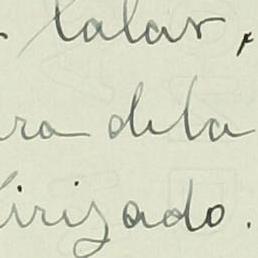 talar,
ra dela
irizado.